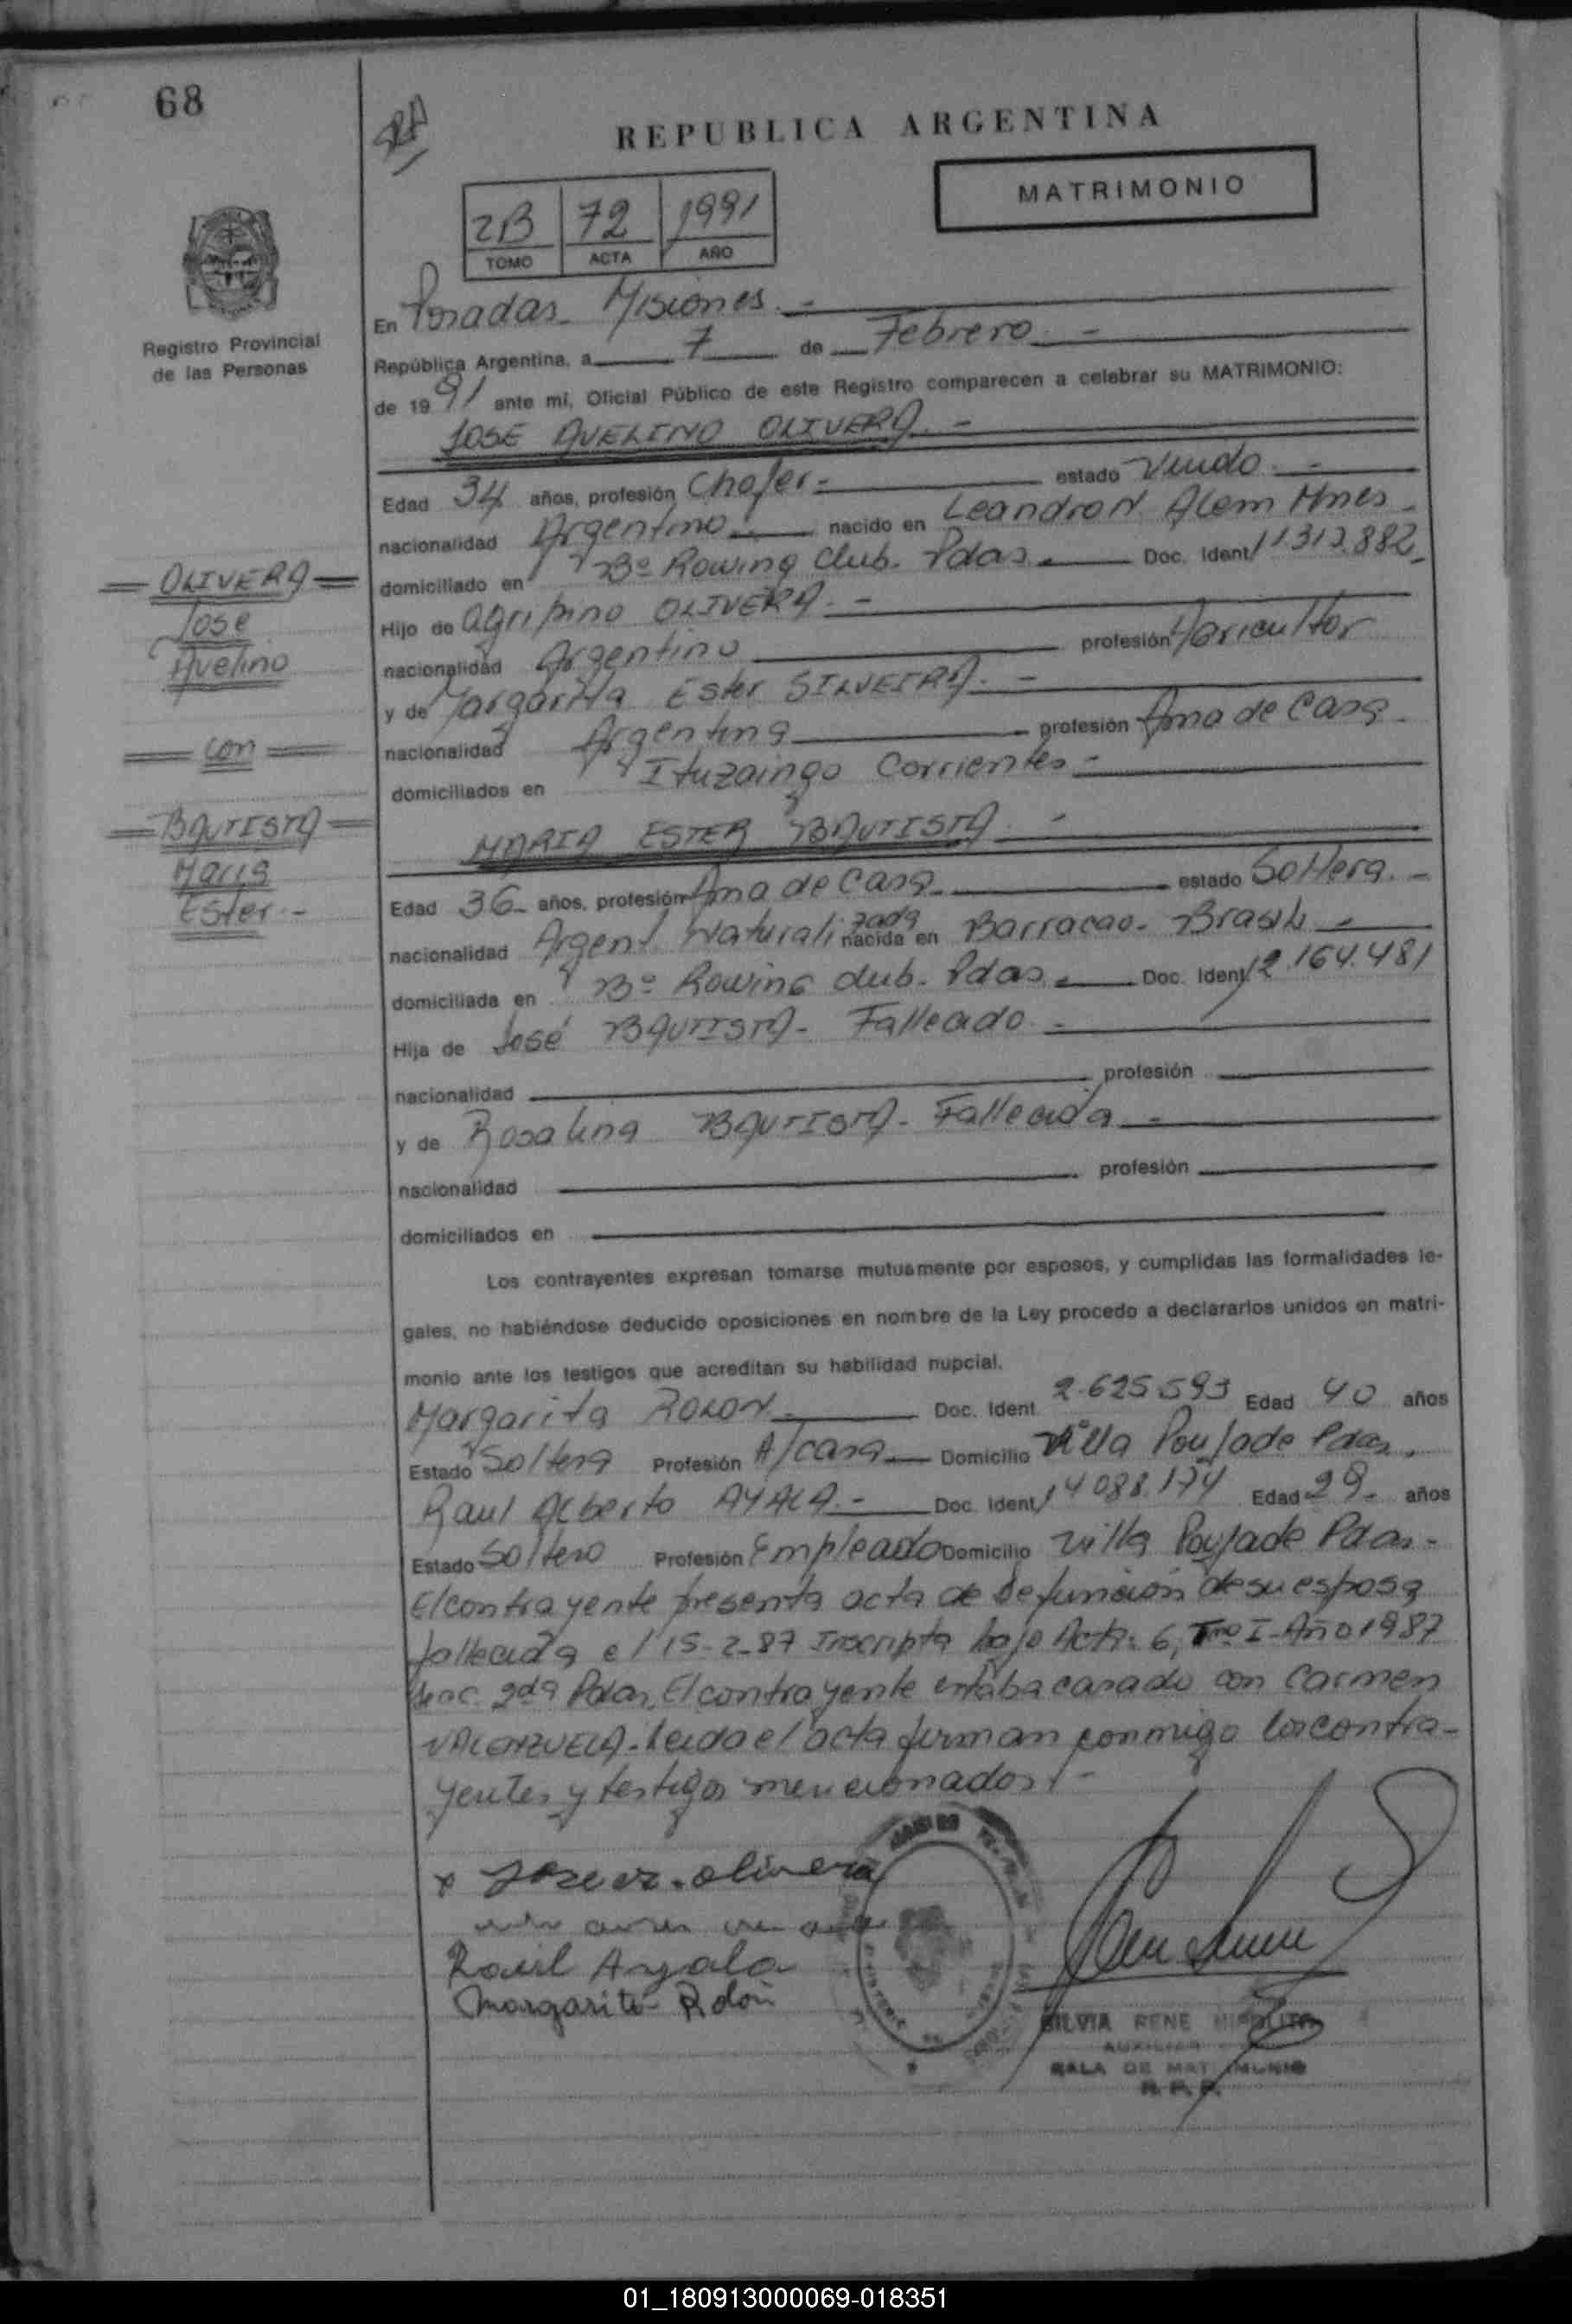 68
REPUBLICA ARGENTINA
MATRIMONIO
2B 72 1991
TOMO ACTA AÑO
Registro Provincial
de las Personas
En Posadas Misiones.-
República Argentina, a 7 de Febrero.-
de 1991 ante mí, Oficial Público de este Registro comparecen a celebrar su MATRIMONIO:
JOSE AVELINO OLIVERA.-
Edad 34 años, profesión Chofer- estado Viudo.-
nacionalidad Argentino.- nacido en Leandro N Alem Mnes-
domiciliado en Bº Rowing Club. Pdas.- Doc. Ident. 11.312.882-
Hijo de Agripino OLIVERA.-
nacionalidad Argentino profesión Agricultor
y de Margarita Ester SILVEIRA.-
nacionalidad Argentina profesión Ama de Casa-
domiciliados en Ituzaingo Corrientes-
MARIA ESTER BAUTISTA.-
Edad 36- años, profesión Ama de Casa- estado Soltera.-
nacionalidad Argent. Naturalizada nacida en Barracao- Brasil-
domiciliada en Bº Rowing Club- Pdas.- Doc. Ident. 12.164.481
Hija de José BAUTISTA- Fallecido.-
nacionalidad profesión
y de Rosalina BAUTISTA- Fallecida-
nacionalidad profesión
domiciliados en
Los contrayentes expresan tomarse mutuamente por esposos, y cumplidas las formalidades le-
gales, no habiéndose deducido oposiciones en nombre de la Ley procedo a declararlos unidos en matri-
monio ante los testigos que acreditan su habilidad nupcial.
Margarita ROLON- Doc. Ident. 2.625.593 Edad 40 años
Estado Soltera Profesión A/casa Domicilio Villa Poujade Pdas.
Raul Alberto AYALA.- Doc. Ident. 14.088.174 Edad 29- años
Estado Soltero Profesión Empleado Domicilio Villa Poujade Pdas-
El contrayente presenta acta de Defunción de su esposa
fallecida el 15-2-87 Inscripta bajo Acta: 6, Tmo I-Año 1987
Secc. 2da Pdas, El contrayente estaba casado con Carmen
VALENZUELA- Leida el acta firman conmigo los contra-
yentes y testigos mencionados.-
OLIVERA
Jose
Avelino
con
BAUTISTA
Maria
Ester.-
olivera
Raul Ayala
Margarita Rolón
SILVIA RENE HIPOLITO
AUXILIAR
SALA DE MATRIMONIO
R. P. P.
01_180913000069-018351